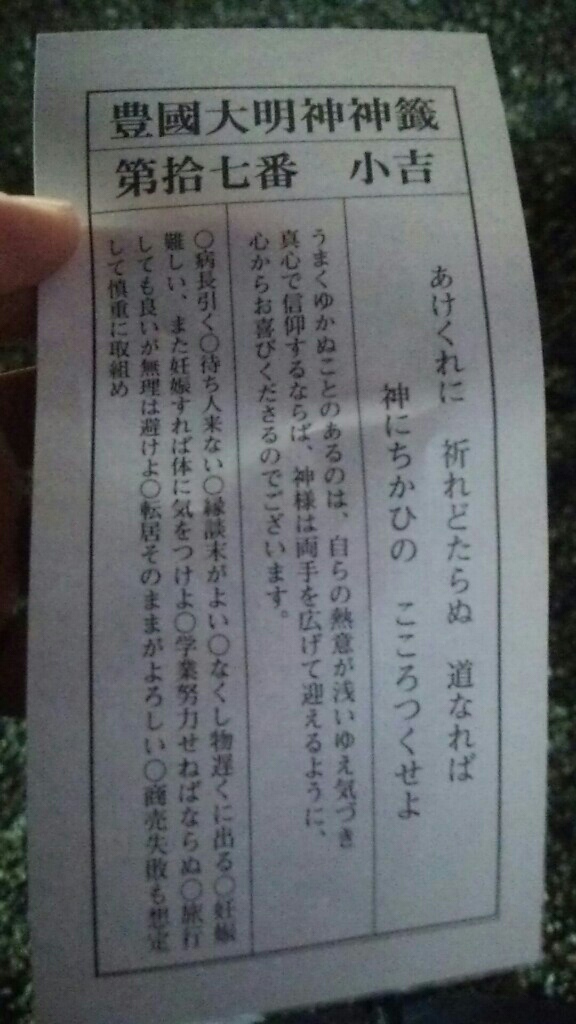 豊國大明神神籤
第拾七番 小吉
あけくれに 祈れどたらぬ 道なれば
神にちかひの こころつくせよ
うまくゆかぬことのあるのは、自らの熱意が浅いゆえ気づき
真心で信仰するならば、神様は両手を広げて迎えるように、
心からお喜びくださるのでございます。
〇病長引く〇待ち人来ない〇縁談末がよい〇なくし物遅くに出る〇妊娠
難しい、また妊娠すれば体に気をつけよ〇学業努力せねばならぬ〇旅行
しても良いが無理は避けよ〇転居そのままがよろしい〇商売失敗も想定
して慎重に取組め